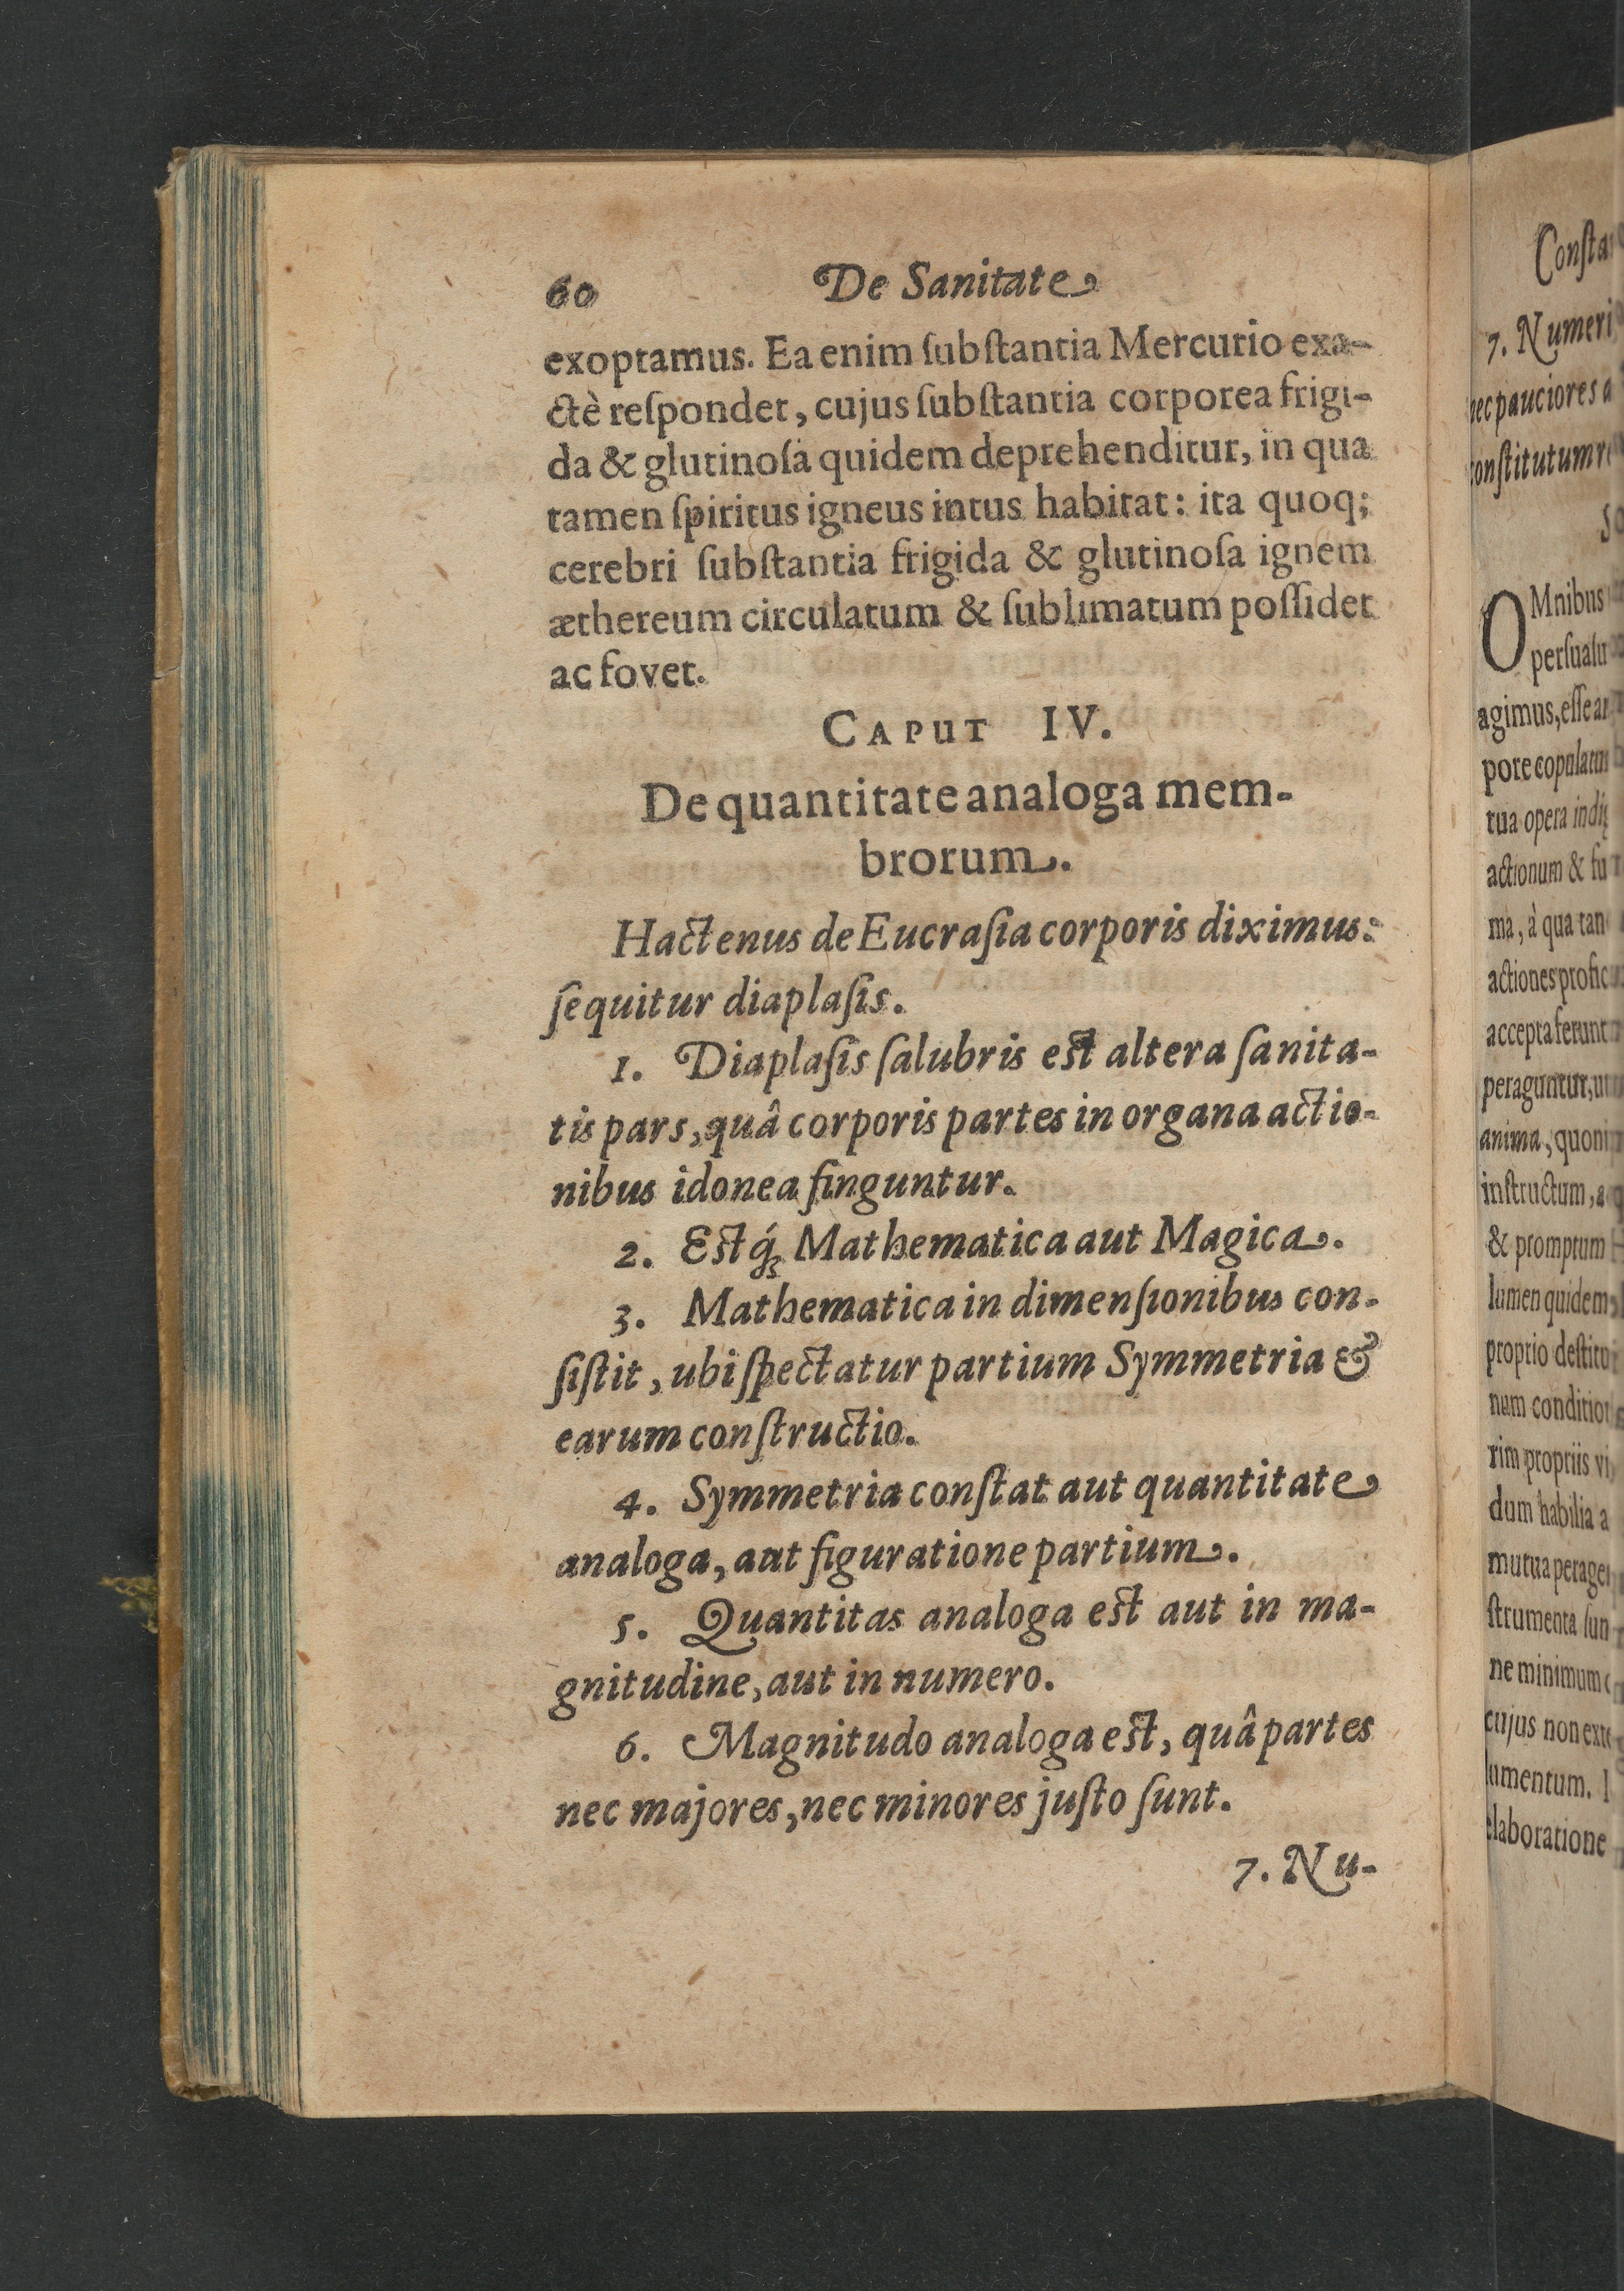 60 De Sanitate
exoptamus. Ea enim ſubſtantia Mercurio exa-
ctè reſpondet, cujus ſubſtantia corporea frigi-
da & glutinoſa quidem deprehenditur, in qua
tamen ſpiritus igneus intus habitat: ita quoq;
cerebri ſubſtantia frigida & glutinoſa ignem
æthereum circulatum & ſublimatum poſſidet
ac fovet.
CAPUT IV.
De quantitate analoga mem-
brorum.
Hactenus de Eucraſia corporis diximus:
ſequitur diaplaſis.
1. Diaplaſis ſalubris est altera ſanita-
tis pars, quâ corporis partes in organa actio-
nibus idonea finguntur.
2. Estq́; Mathematica aut Magica.
3. Mathematica in dimenſionibus con-
ſiſtit, ubi ſpectatur partium Symmetria &
earum conſtructio.
4. Symmetria conſtat aut quantitate
analoga, aut figuratione partium.
5. Quantitas analoga est aut in ma-
gnitudine, aut in numero.
6. Magnitudo analoga est, quâ partes
nec majores, nec minores juſto ſunt.
7. Nu-
7. Numeri
nec pauciores a
OMnibus
agimus, eſſe
tua opera
actionum & fu
ma, à qua tan
actiones profic
accepta ferunt
peraguntur, u
anima, quoni
inſtructum, a
& promptum
lumen quidem
proprio deſtitu
num conditio
rim propriis vi
dum habilia a
mutua perage
ſtrumenta ſun
ne minimum
cujus non ext
umentum. I
elaboratione